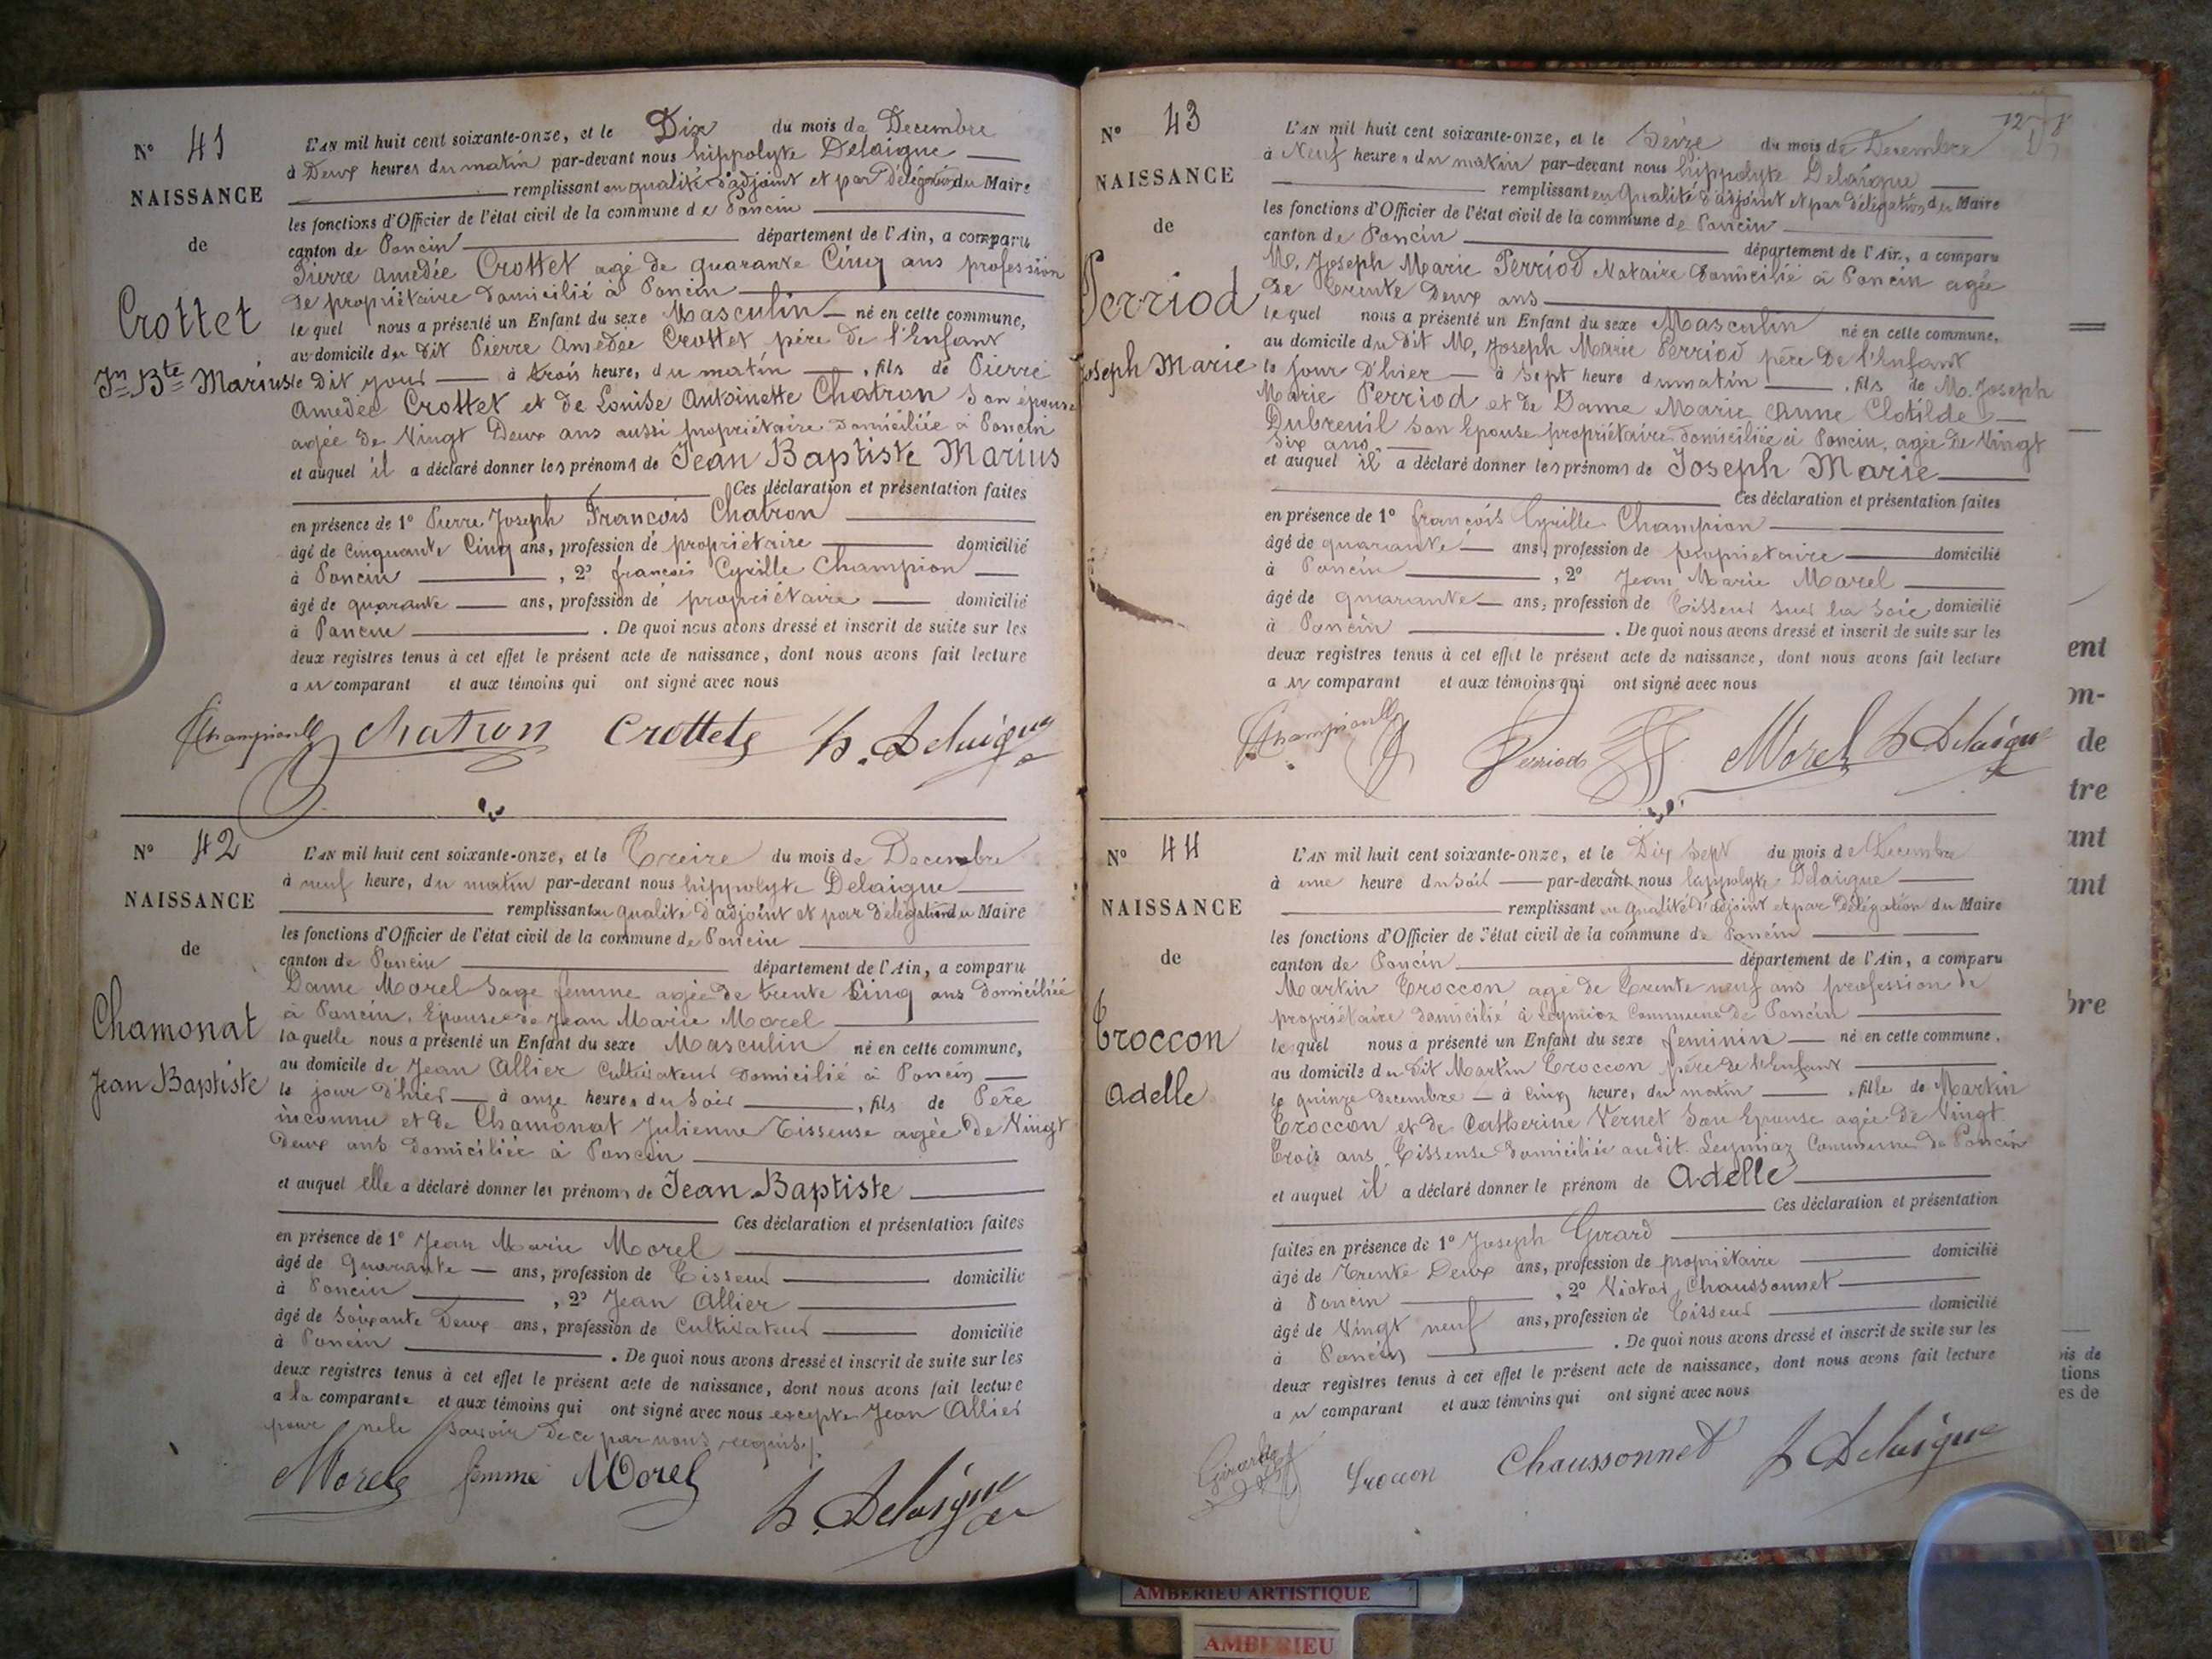 N° 41
NAISSANCE
de
Crottet
Jn Bte Marius
L'AN mil huit cent soixante-onze, et le Dix du mois de Decembre
à Deux heures du matin par-devant nous hippolyte Delaigue
remplissant en qualité d'adjoint et par Délégation du Maire
les fonctions d'Officier de l'état civil de la commune de Poncin
canton de Poncin département de l'Ain, a comparu
Pierre Amedée Crottet agé de quarante Cinq ans profession
de propriétaire domicilié à Poncin
le quel nous a présenté un Enfant du sexe Masculin né en cette commune,
au domicile du dit Pierre Amedée Crottet père de l'Enfant
le dit jour à trois heure, du matin, fils de Pierre
Amedée Crottet et de Louise Antoinette Chatron Son épouse
agée de Vingt Deux ans aussi propriétaire domiciliée à Poncin
et auquel il a déclaré donner les prénoms de Jean Baptiste Marius
Ces déclaration et présentation faites
en présence de 1° Pierre Joseph François Chatron
âgé de cinquante Cinq ans, profession de propriétaire domicilié
à Poncin, 2° françois Cyrille Champion
âgé de quarante ans, profession de propriétaire domicilié
à Poncin. De quoi nous avons dressé et inscrit de suite sur les
deux registres tenus à cet effet le présent acte de naissance, dont nous avons fait lecture
au comparant et aux témoins qui ont signé avec nous
Chatron Crottet h. Delaigue
N° 42
NAISSANCE
de
Chamonat
Jean Baptiste
L'AN mil huit cent soixante-onze, et le Treize du mois de Decembre
à neuf heure, du matin par-devant nous hippolyte Delaigue
remplissant en qualité d'adjoint et par délégation du Maire
les fonctions d'Officier de l'état civil de la commune de Poncin
canton de Poncin département de l'Ain, a comparu
Dame Morel Sage femme agée de trente Cinq ans domiciliée
à Poncin, Epouse de Jean Marie Morel
laquelle nous a présenté un Enfant du sexe Masculin né en cette commune,
au domicile de Jean Allier Cultivateur domicilié à Poncin
le jour d'hier à onze heures du Soir, fils de Père
inconnu et de Chamonat Julienne Tisseuse agée de Vingt
Deux ans domiciliée à Poncin
et auquel elle a déclaré donner les prénoms de Jean Baptiste
Ces déclaration et présentation faites
en présence de 1° Jean Marie Morel
âgé de Quarante ans, profession de Tisseur domicilié
à Poncin, 2° Jean Allier
âgé de Soixante Deux ans, profession de Cultivateur domicilié
à Poncin. De quoi nous avons dressé et inscrit de suite sur les
deux registres tenus à cet effet le présent acte de naissance, dont nous avons fait lecture
a la comparante et aux témoins qui ont signé avec nous excepté Jean Allier
pour ne le savoir de ce par nous requis.
Morel femme Morel
h. Delaigue
N° 43
NAISSANCE
de
Perriod
Joseph Marie
L'AN mil huit cent soixante-onze, et le Seize du mois de Decembre
à Neuf heures du matin par-devant nous hippolyte Delaigue
remplissant en Qualité d'adjoint et par délégation du Maire
les fonctions d'Officier de l'état civil de la commune de Poncin
canton de Poncin département de l'Ain, a comparu
M. Joseph Marie Perriod Notaire domicilié à Poncin agée
de Trente Deux ans
le quel nous a présenté un Enfant du sexe Masculin né en cette commune,
au domicile du dit M. Joseph Marie Perriod père de l'Enfant
le jour d'hier à Sept heure du matin, fils de M. Joseph
Marie Perriod et de Dame Marie Anne Clotilde
Dubreuil Son Epouse propriétaire domiciliée à Poncin, agée de Vingt
Six ans
et auquel il a déclaré donner les prénoms de Joseph Marie
Ces déclaration et présentation faites
en présence de 1° françois Cyrille Champion
âgé de quarante ans, profession de propriétaire domicilié
à Poncin, 2° Jean Marie Morel
âgé de quarante ans, profession de Tisseur sur la Soie domicilié
à Poncin. De quoi nous avons dressé et inscrit de suite sur les
deux registres tenus à cet effet le présent acte de naissance, dont nous avons fait lecture
au comparant et aux témoins qui ont signé avec nous
Perriod Morel h Delaigue
N° 44
NAISSANCE
de
Troccon
Adelle
L'AN mil huit cent soixante-onze, et le Dix Sept du mois de Decembre
à une heure du Soir par-devant nous hippolyte Delaigue
remplissant en qualité d'adjoint et par délégation du Maire
les fonctions d'Officier de l'état civil de la commune de Poncin
canton de Poncin département de l'Ain, a comparu
Martin Troccon agé de Trente neuf ans profession de
propriétaire domicilié à Leymiaz Commune de Poncin
le quel nous a présenté un Enfant du sexe feminin né en cette commune,
au domicile du dit Martin Troccon père de l'Enfant
le quinze decembre à Cinq heure, du matin, fille de Martin
Troccon et de Catherine Vernet Son Epouse agée de Vingt
Trois ans, Tisseuse domiciliée audit Leymiaz Commune de Poncin
et auquel il a déclaré donner le prénom de Adelle
Ces déclaration et présentation
faites en présence de 1° Joseph Girard
âgé de Trente Deux ans, profession de propriétaire domicilié
à Poncin, 2° Victor Chaussonnet
âgé de Vingt neuf ans, profession de Tisseur domicilié
à Poncin. De quoi nous avons dressé et inscrit de suite sur les
deux registres tenus à cet effet le présent acte de naissance, dont nous avons fait lecture
au comparant et aux témoins qui ont signé avec nous
Troccon Chaussonnet h Delaigue
ent
m-
de
tre
ant
ant
bre
is de
tions
es de
AMBERIEU ARTISTIQUE
AMBERIEU